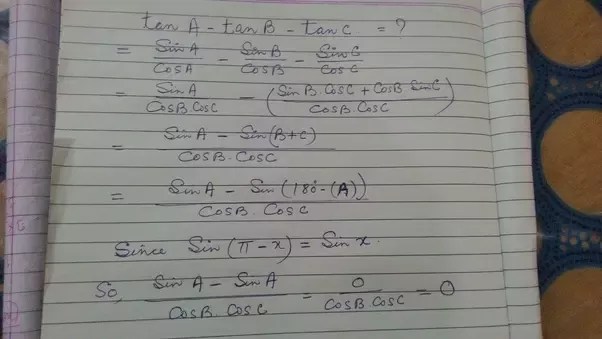 tanA - tanB - tanC = ?
= SinA/CosA - SinB/CosB - SinC/CosC
= SinA/CosB CosC - (SinB. CosC + CosB SinC/CosB. CosC)
= SinA - Sin(B+C)/CosB. CosC
= SinA - Sin(180-(A))/CosB. CosC
Since Sin(π-x) = Sinx.
So, SinA - SinA/CosB. CosC = 0/CosB. CosC = 0